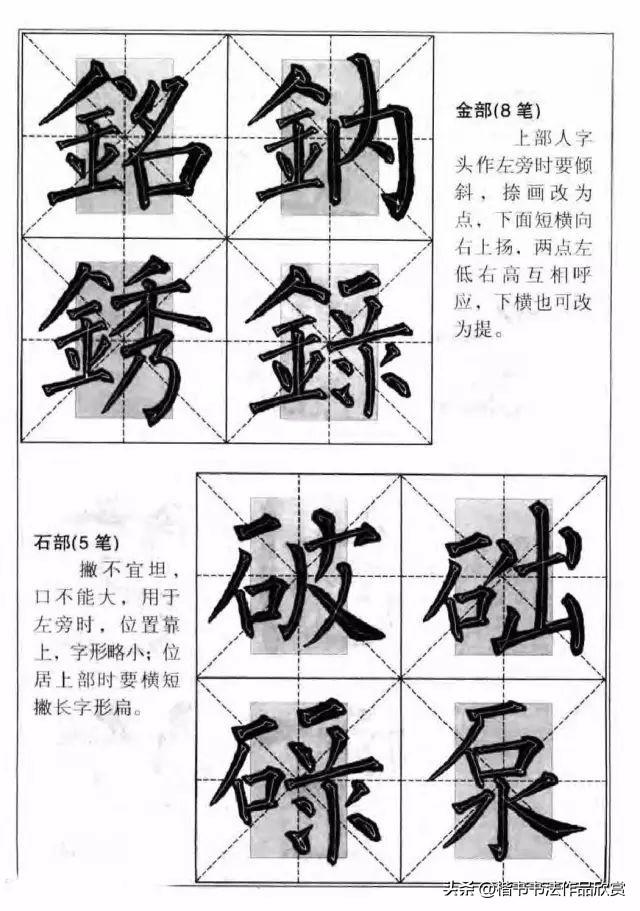 銘 鈉
銹 録
金部(8笔)
上部人字
头作左旁时要倾
斜，捺画改为
点，下面短横向
右上扬，两点左
低右高互相呼
应，下横也可改
为提。
石部(5笔)
撇不宜坦，
口不能大，用于
左旁时，位置靠
上，字形略小；位
居上部时要横短
撇长字形扁。
破 础
碌 泵
头条@楷书书法作品欣赏